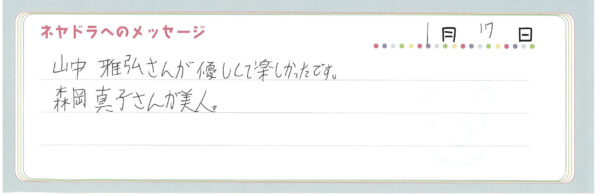 ネヤドラへのメッセージ
1月17日
山中雅弘さんが優しくて楽しかったです。
森岡真子さんが美人。